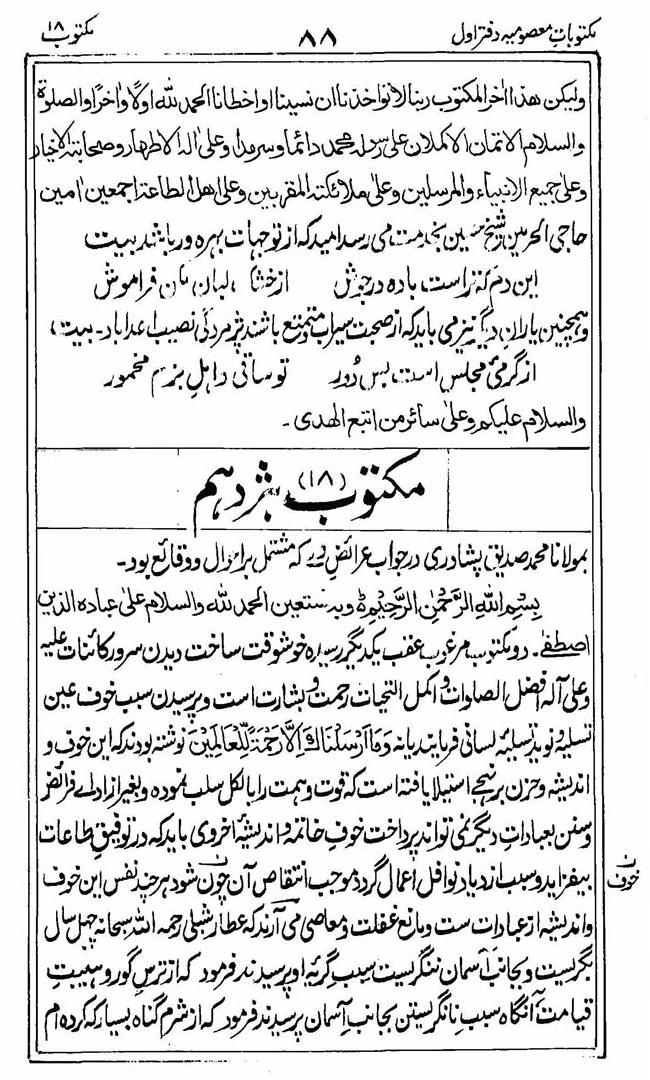 مکتوبات معصومیہ دفتر اول ۸۸ مکتوب ۱۸
ولیکن هذا اٰخر المکتوب ربنا لا تواخذنا ان نسینا او اخطانا الحمد لله اولًا واٰخرًا والصلوٰة
والسلام الاتمان الاکملان علی رسوله محمد دائما وسرمدا وعلی اٰله الاطهار وصحابته الاخیار
وعلی جمیع الانبیاء والمرسلین وعلی ملائکته المقربین وعلی اهل الطاعة اجمعین اٰمین
حاجی الحرمین شیخ حسین بخدمت می رسد امید که از توجهات بهره ور باشند بیت
این دم که تراست باده در جوش از خشک لبان فراموش
وهمچنین یاران دیگر نیز می باید که از صحبت سیراب ومتمتع باشند پژمردگی نصیب اعدا باد۔ بیت،
از گرمیٔ مجلس است بس دُور تو ساقی و اهل بزم مخمور
والسلام علیکم وعلی سائر من اتبع الهدی۔
مکتوب (۱۸) هژدهم
بمولانا محمد صدیق پشاوری در جواب عرائض وے که مشتمل بر احوال و وقائع بود۔
بِسْمِ اللهِ الرَّحْمٰنِ الرَّحِیْمِ ط وبه نستعین الحمد لله والسلام علی عباده الذین
اصطفٰی۔ دو مکتوب مرغوب عقب یکدیگر رسیده خوشوقت ساخت دیدن سرور کائنات علیه
وعلی آله افضل الصلوات و اکمل التحیات رحمت و بشارت است و پرسیدن سبب خوف عین
تسلیه و نوید تسلیهٔ لسانی فرمایند یا نه وَمَا اَرْسَلْنَاكَ اِلَّا رَحْمَةً لِّلْعَالَمِیْنَ نوشته بودند که این خوف و
اندیشه و حزن بر نهجے استیلا یافته است که قوت و همت را بالکل سلب نموده و بغیر از ادائے فرائض
و سنن بعبادات دیگر نمی تواند پرداخت خوفِ خاتمه و اندیشهٔ اخروی باید که در توفیقِ طاعات
بیفزاید و سبب ازدیاد نوافل اعمال گردد موجب انتقاص آن چون شود هر چند نفس این خوف
خوف
و اندیشه از عبادات ست و مانع غفلت و معاصی می آرند که عطار شبلی رحمه الله سبحانه چهل سال
بگریست و بجانب آسمان ننگریست سببِ گریهٔ او پرسیدند فرمود که از ترسِ گور و هیبتِ
قیامت آنگاه سبب نانگریستن بجانب آسمان پرسیدند فرمود که از شرم گناه بسیار که کرده ام